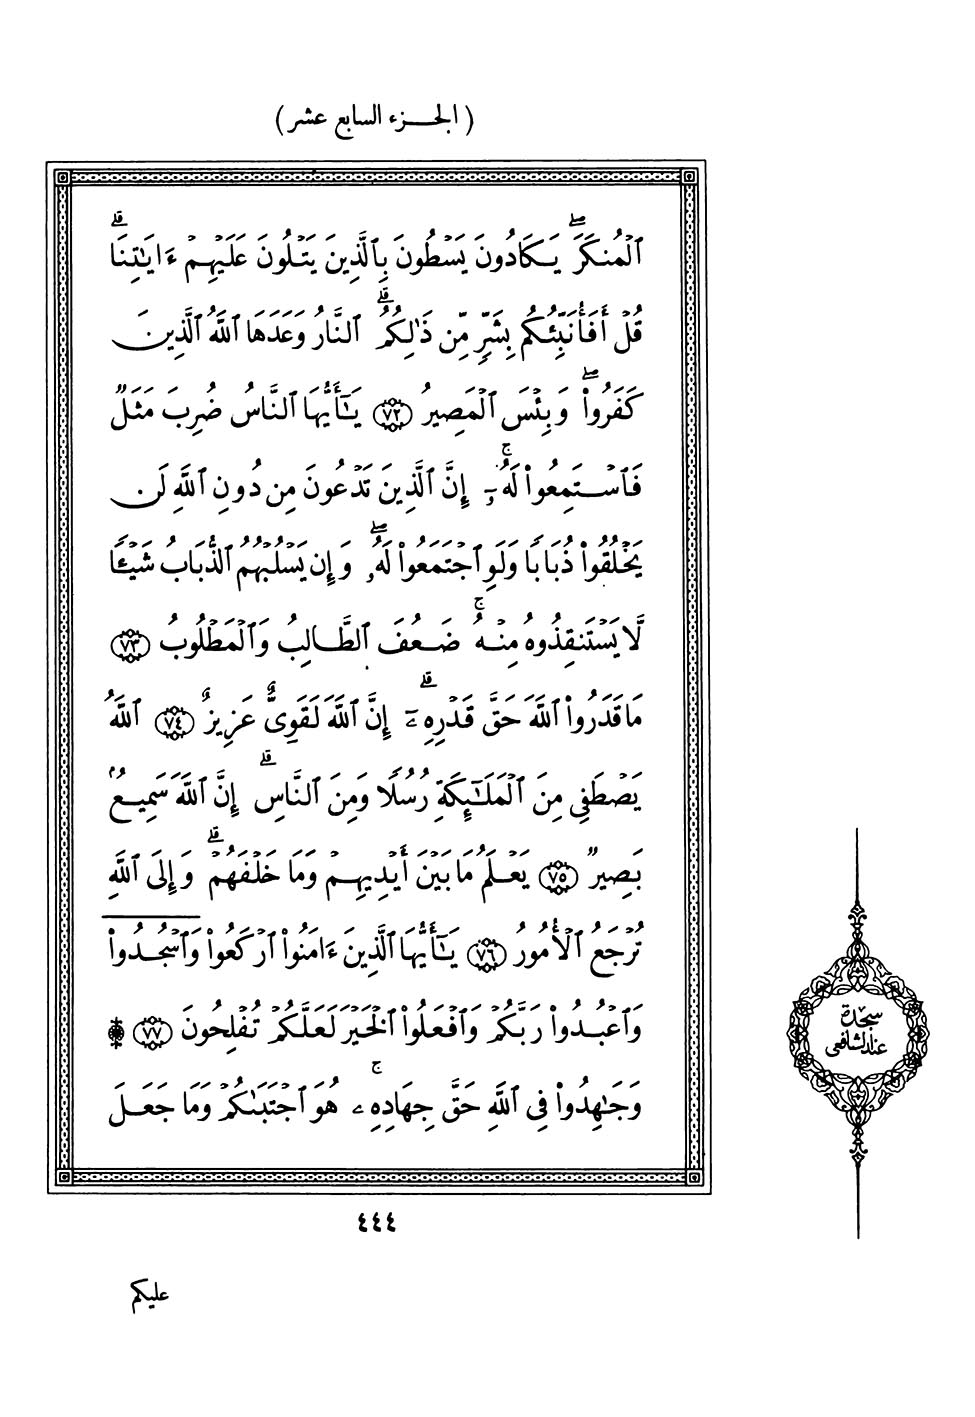 ( الجزء السابع عشر )
ٱلْمُنكَرَ ۖ يَكَادُونَ يَسْطُونَ بِٱلَّذِينَ يَتْلُونَ عَلَيْهِمْ ءَايَـٰتِنَا ۗ
قُلْ أَفَأُنَبِّئُكُم بِشَرٍّ مِّن ذَٰلِكُمُ ۗ ٱلنَّارُ وَعَدَهَا ٱللَّهُ ٱلَّذِينَ
كَفَرُوا۟ ۖ وَبِئْسَ ٱلْمَصِيرُ ﴿٧٢﴾ يَـٰٓأَيُّهَا ٱلنَّاسُ ضُرِبَ مَثَلٌ
فَٱسْتَمِعُوا۟ لَهُۥٓ ۚ إِنَّ ٱلَّذِينَ تَدْعُونَ مِن دُونِ ٱللَّهِ لَن
يَخْلُقُوا۟ ذُبَابًا وَلَوِ ٱجْتَمَعُوا۟ لَهُۥ ۖ وَإِن يَسْلُبْهُمُ ٱلذُّبَابُ شَيْـًٔا
لَّا يَسْتَنقِذُوهُ مِنْهُ ۚ ضَعُفَ ٱلطَّالِبُ وَٱلْمَطْلُوبُ ﴿٧٣﴾
مَا قَدَرُوا۟ ٱللَّهَ حَقَّ قَدْرِهِۦٓ ۗ إِنَّ ٱللَّهَ لَقَوِىٌّ عَزِيزٌ ﴿٧٤﴾ ٱللَّهُ
يَصْطَفِى مِنَ ٱلْمَلَـٰٓئِكَةِ رُسُلًا وَمِنَ ٱلنَّاسِ ۗ إِنَّ ٱللَّهَ سَمِيعُۢ
بَصِيرٌ ﴿٧٥﴾ يَعْلَمُ مَا بَيْنَ أَيْدِيهِمْ وَمَا خَلْفَهُمْ ۗ وَإِلَى ٱللَّهِ
تُرْجَعُ ٱلْأُمُورُ ﴿٧٦﴾ يَـٰٓأَيُّهَا ٱلَّذِينَ ءَامَنُوا۟ ٱرْكَعُوا۟ وَٱسْجُدُوا۟
وَٱعْبُدُوا۟ رَبَّكُمْ وَٱفْعَلُوا۟ ٱلْخَيْرَ لَعَلَّكُمْ تُفْلِحُونَ ﴿٧٧﴾ ۩
وَجَـٰهِدُوا۟ فِى ٱللَّهِ حَقَّ جِهَادِهِۦ ۚ هُوَ ٱجْتَبَىٰكُمْ وَمَا جَعَلَ
سجدة
عند الشافعي
٤٤٤
عليكم